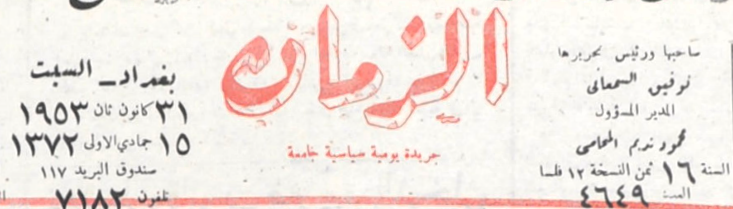 صاحبها ورئيس تحريرها
توفيق السمعاني
المدير المسؤول
محمود نديم المحامي
السنة ١٦ ثمن النسخة ١٢ فلسا
العدد ٤٦٤٩
الزمان
جريدة يومية سياسية جامعة
بغداد ــ السبت
٣١ كانون ثان ١٩٥٣
١٥ جمادي الاولى ١٣٧٢
صندوق البريد ١١٧
تلفون ٧١٨٢